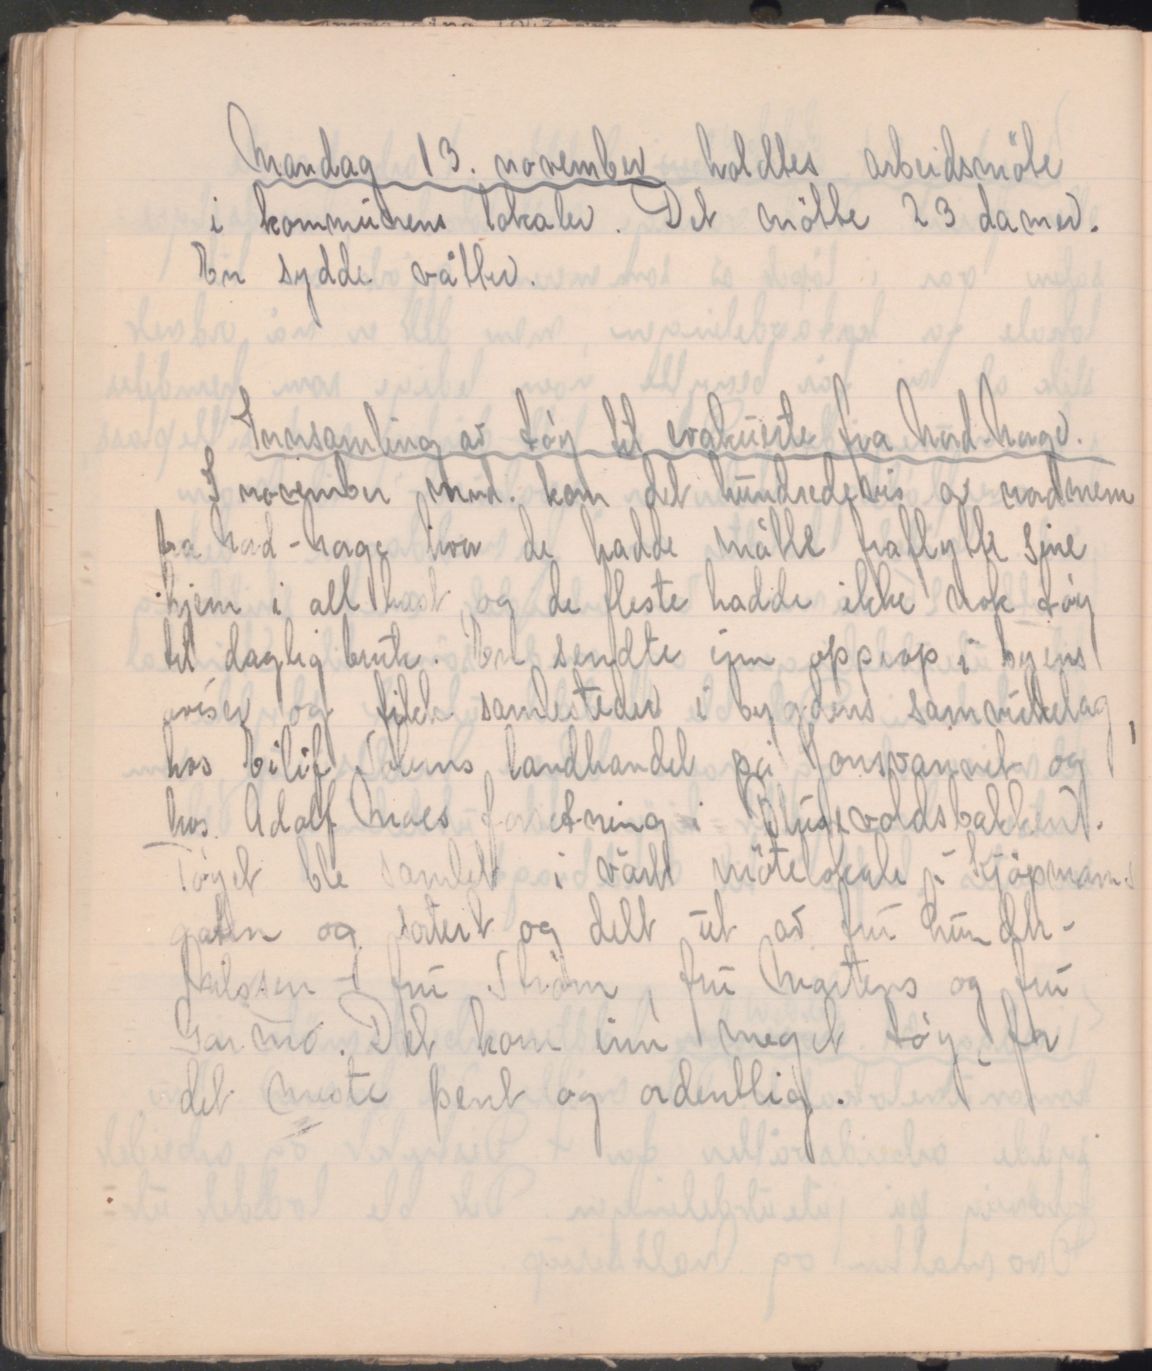 Mandag 13. november holdtes arbeidsmöte
i kommunens lokaler. Det mötte 23 damer.
En sydde våtter.
Innsamling av tøy til evakuerte fra Nord-Norge.
I november mnd. kom det hundredevis av nordmenn
fra Nord-Norge hvor de hadde måtte fraflytte sine
hjem i all hast og de fleste hadde ikke nok tøy
til daglig bruk. En sendte inn opprop i byens
aviser og fikk samlesteder i bygdens samvirkelag,
hos Eilif Solems landhandel på Jonsvannet og
hos Adolf Moes forretning i Stubevoldsbakken.
Tøyet ble samlet i vårt mötelokale i Kjøpmanns
gaten og sortert og delt ut av fru
Nilssen fru Ström, fru Martens og fru
Garmo. Det kom inn meget tøy, for
det meste pent og ordentlig.